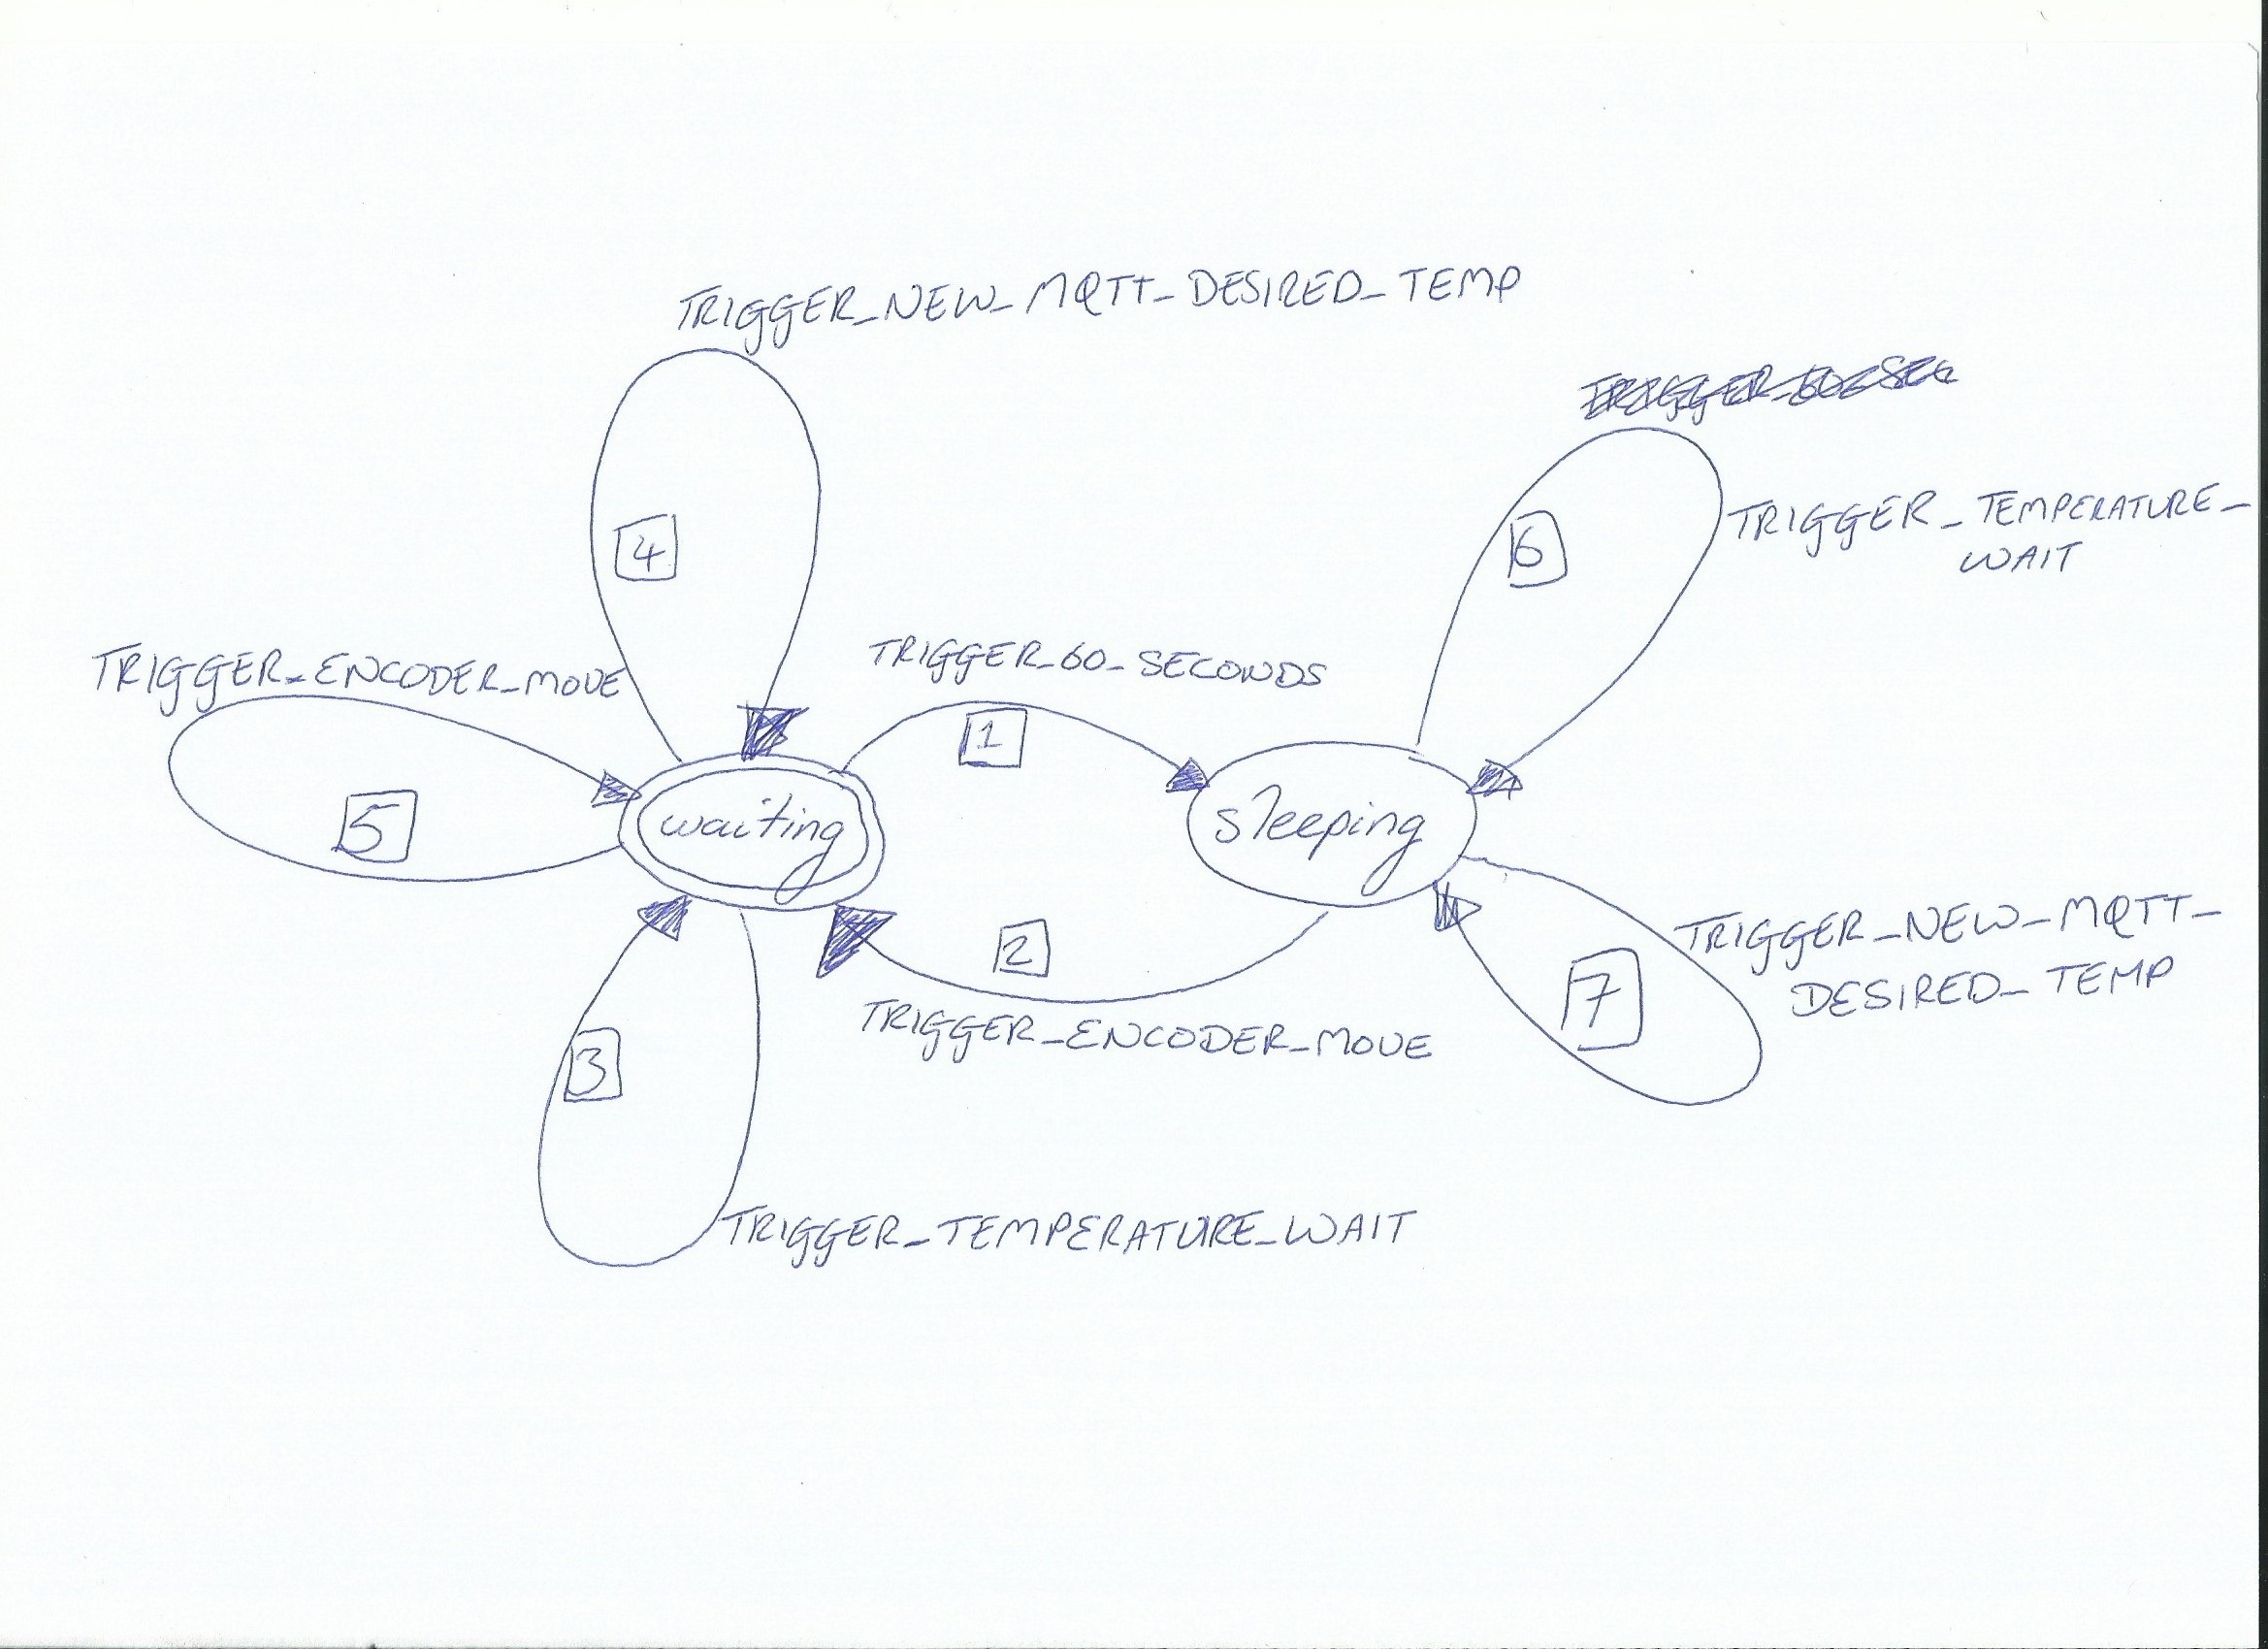 TRIGGER_NEW_MQTT_DESIRED_TEMP
TRIGGER_60_SEC
4
6
TRIGGER_TEMPERATURE_
WAIT
TRIGGER_ENCODER_MOVE
TRIGGER_60_SECONDS
1
5
waiting
sleeping
2
TRIGGER_ENCODER_MOVE
TRIGGER_NEW_MQTT_
DESIRED_TEMP
7
3
TRIGGER_TEMPERATURE_WAIT